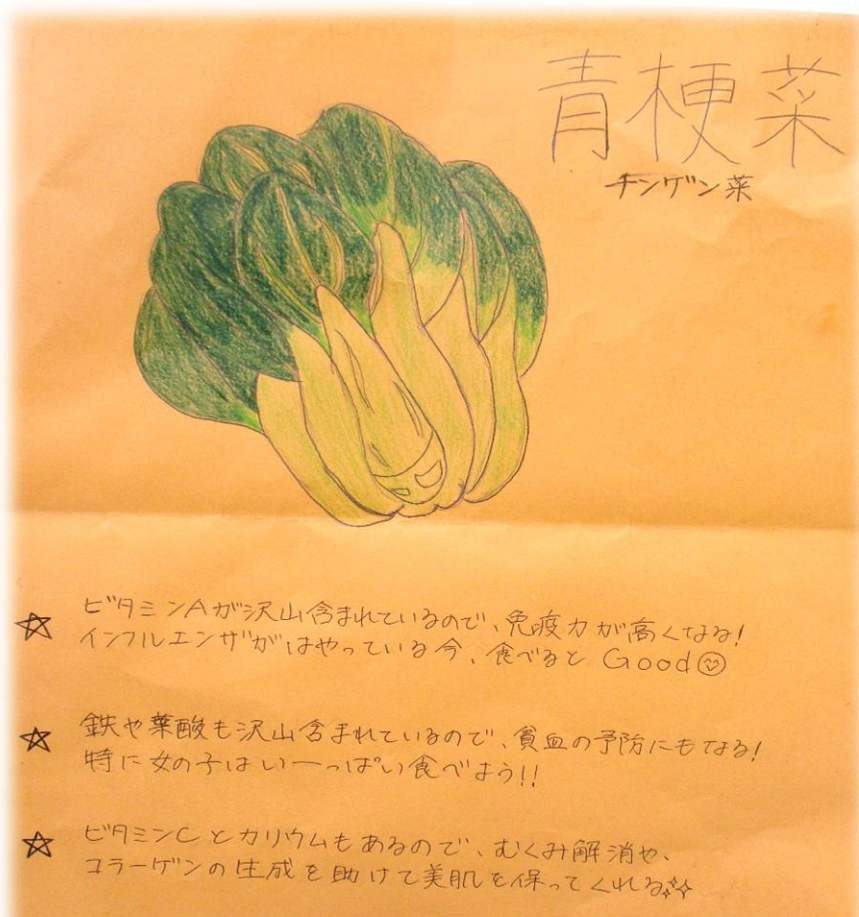 青梗菜
チンゲン菜
☆ ビタミンAが沢山含まれているので、免疫力が高くなる!
インフルエンザがはやっている今、食べると Good☺
☆ 鉄や葉酸も沢山含まれているので、貧血の予防にもなる!
特に女の子はいーっぱい食べよう!!
☆ ビタミンCとカリウムもあるので、むくみ解消や、
コラーゲンの生成を助けて美肌を保ってくれる✨